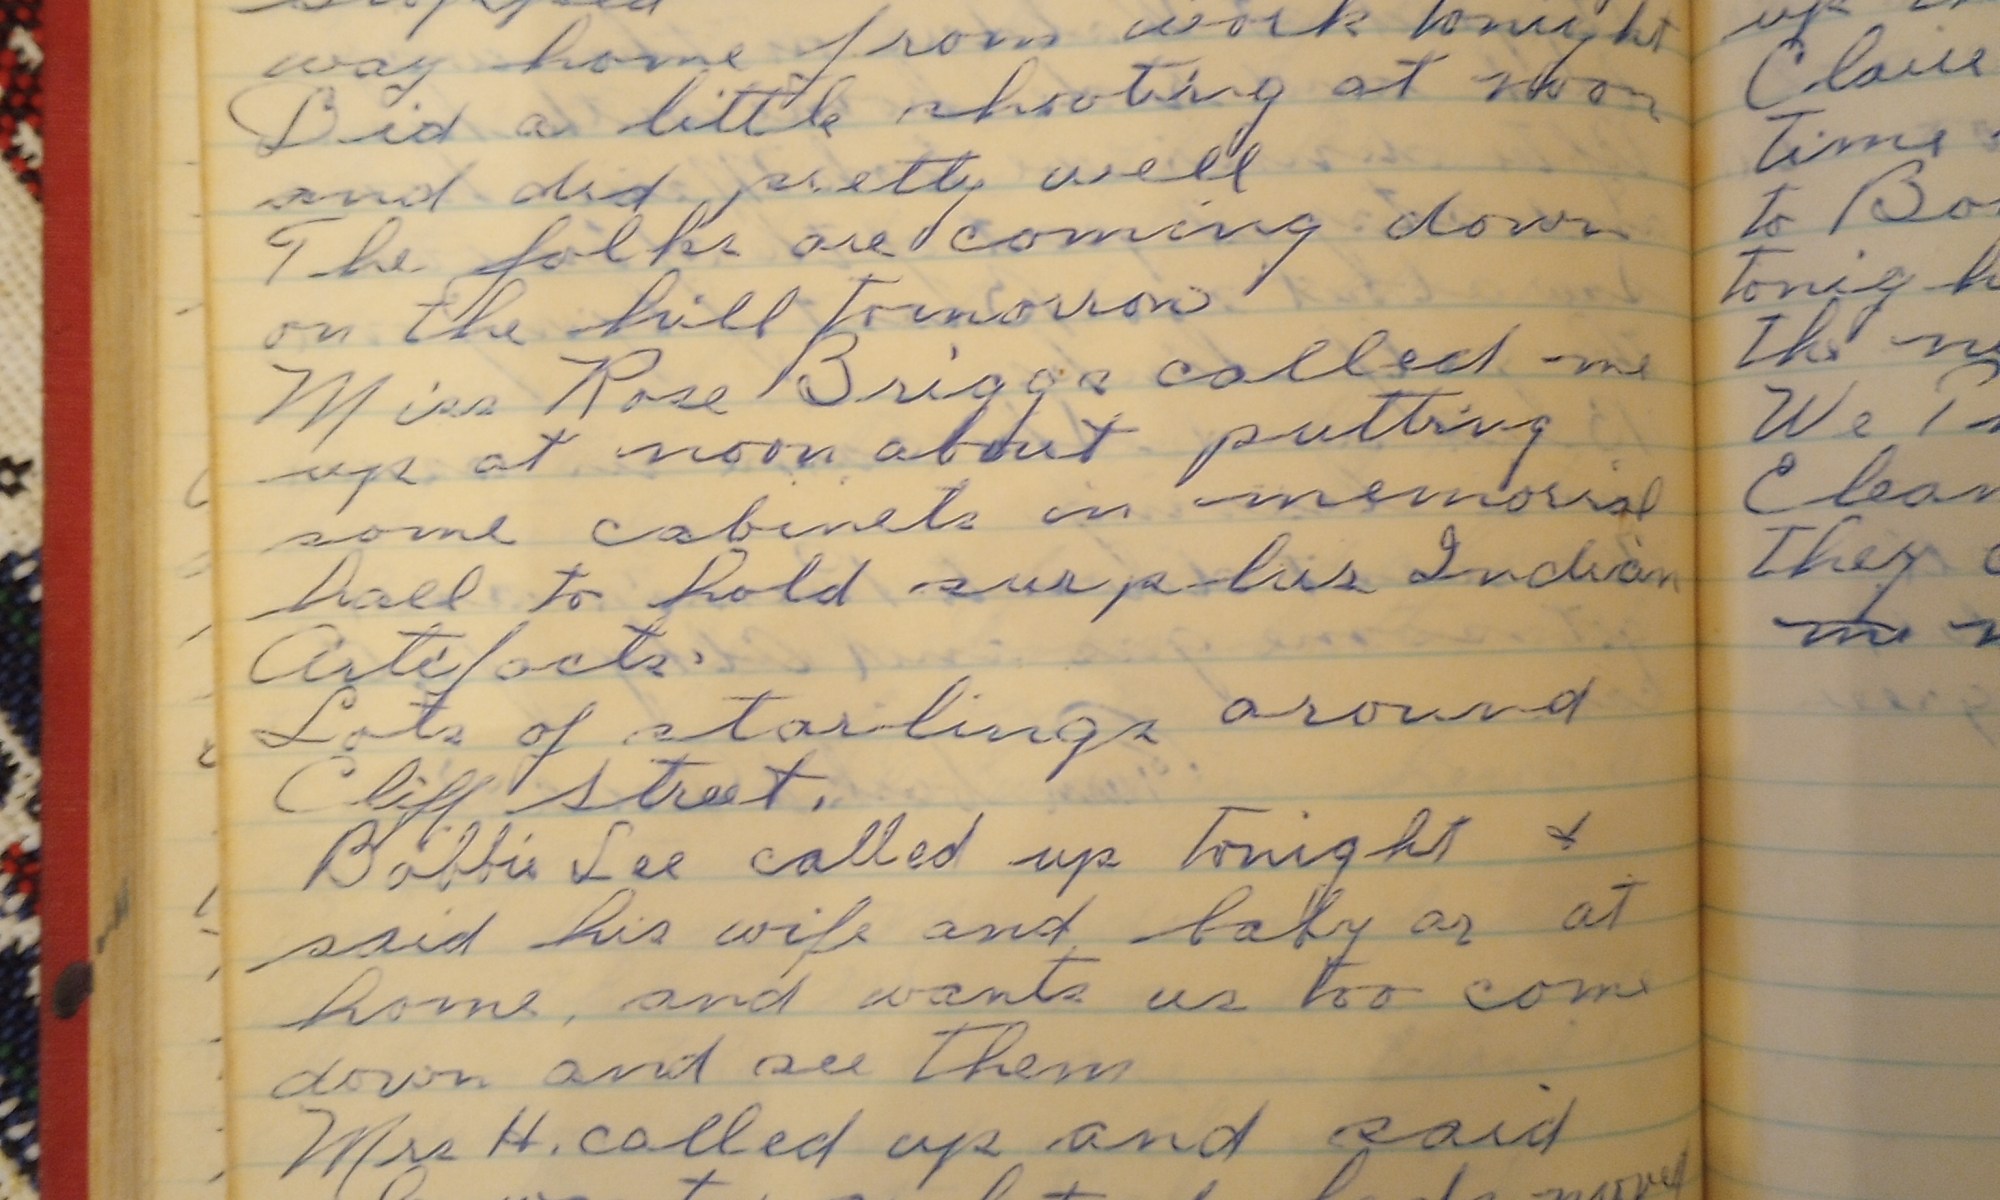 stopped
way home from work tonight
Did a little shooting at noon
and did pretty well
The folks are coming down
on the hill tomorrow
Miss Rose Briggs called me
up at noon about putting
some cabinets in memorial
hall to hold surplus Indian
Artifacts.
Lots of starlings around
Cliff Street.
Bobbie Lee called up tonight &
said his wife and baby ar at
home, and wants us too come
down and see them
Mrs H. called up and said
moved
up
Claire
time
to Bo
tonigh
the
We
Clean
they